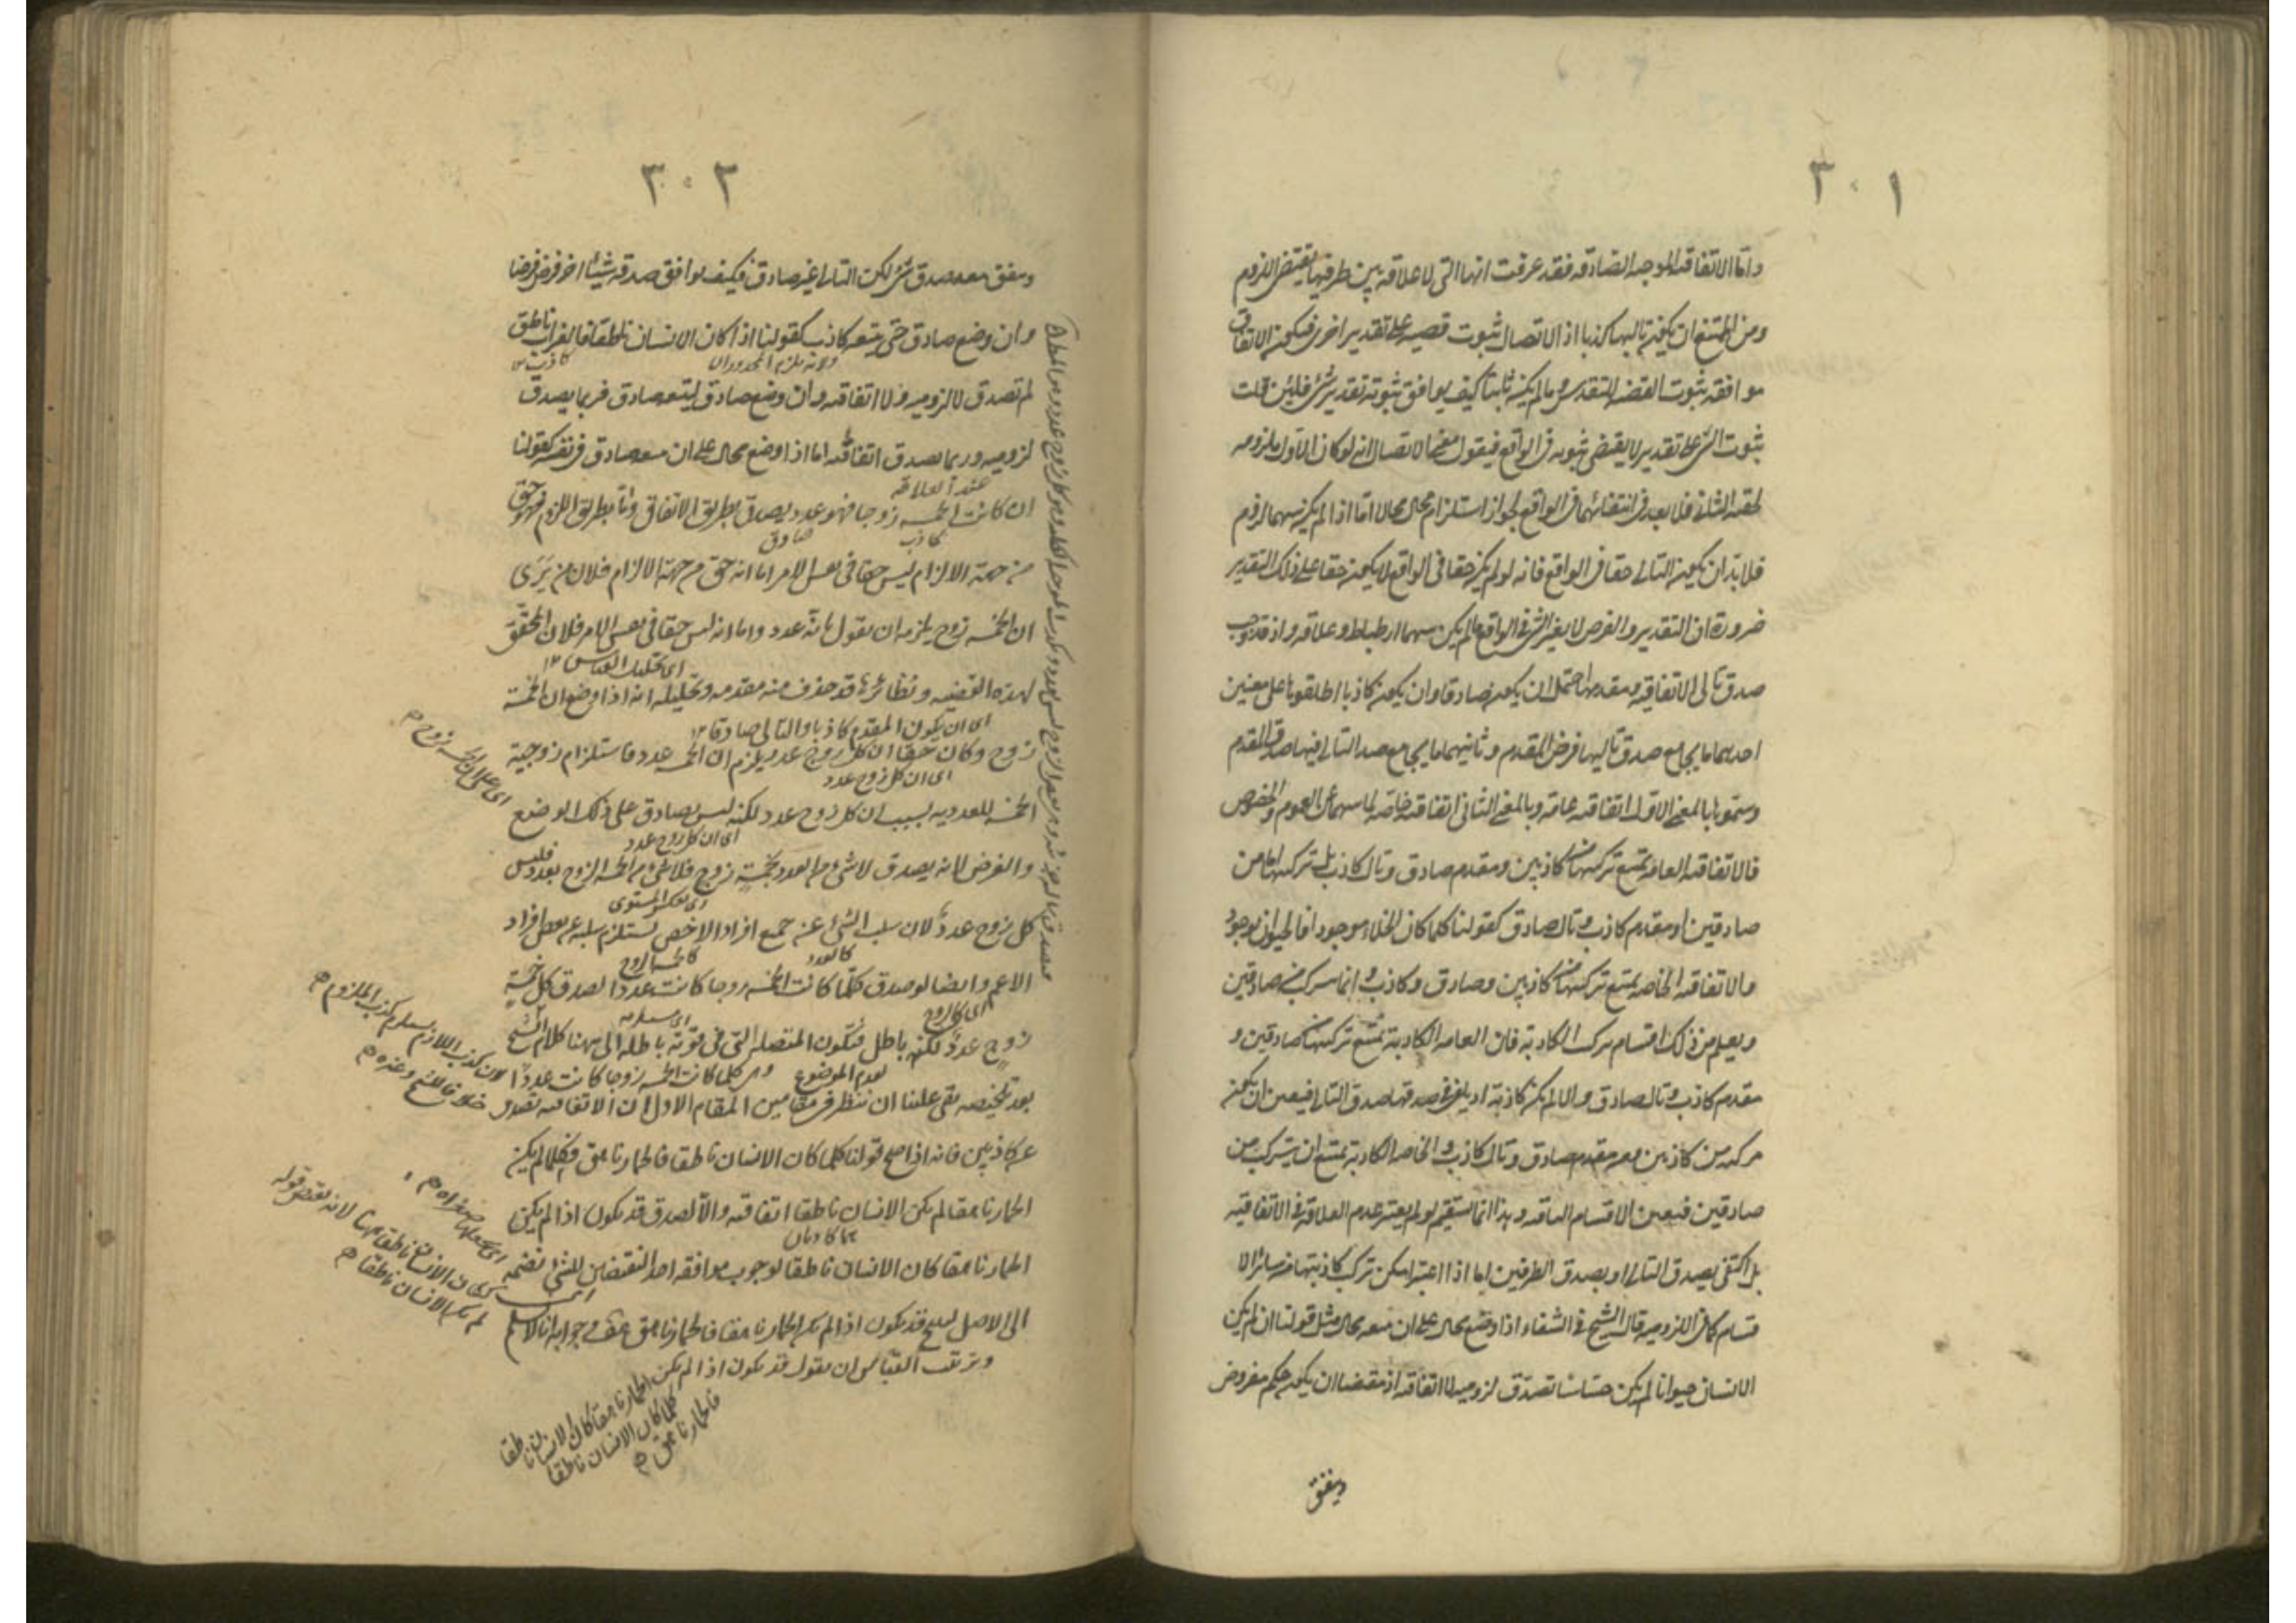 ٣٠١
واما الاتفاقيه الموجبه الصادقه فقد عرفت انها التى لا علاقه بين طرفيها يقتضى اللزوم
ومن الممتنع ان يكون تاليها كذبا اذ الاتصال ثبوت قضيه على تقدير اخرى فيكون الاتفاق
موافقه ثبوت القضيه لتقدير وما لم يكن ثابتا كيف يوافق ثبوته تقدير شئ فلئن قلت
ثبوت الشئ على تقدير لا يقتضى ثبوته فى الواقع فيقول معنى الاتصال انه لو كان الاول ملزومه
لحقه الثانى فلا بعد فى انتفائهما فى الواقع لجواز استلزام محال محالا اما اذا لم يكن بينهما لزوم
فلا بد ان يكون التالى حقا فى الواقع فانه لو لم يكن حقا فى الواقع لا يكون حقا على ذلك التقدير
ضرورة ان التقدير والفرض لا يغير الشئ فى الواقع ما لم يكن بينهما ارطباط وعلاقه واذ قد وجب
صدق تالى الاتفاقيه ومقدمها احتمل ان يكون صادقا وان يكون كاذبا اطلقوها على معنين
احدهما ما يجامع صدق تاليها فرض المقدم وثانيهما ما يجامع صدق التالى فيها صدق المقدم
وسموها بالمعنى الاول اتفاقيه عامه وبالمعنى الثانى اتفاقيه خاصه لما بينهما من العموم والخصوص
فالاتفاقيه العامه يمتنع تركيبها من كاذبين ومقدم صادق وتال كاذب بل تركيبها اما من
صادقين او مقدم كاذب وتال صادق كقولنا كلما كان الخلاء موجودا فالحيوان موجود
والاتفاقيه الخاصه يمتنع تركيبها من كاذبين وصادق وكاذب وانما يتركب من صادقين
ويعلم من ذلك اقسام تركب الكاذبه فان العامه الكاذبه يمتنع تركيبها من صادقين و
مقدم كاذب وتال صادق والا لم يكن كاذبه اذ يكفى فى صدقها صدق التالى فيتعين ان يكون
مركبه من كاذبين ومن مقدم صادق وتال كاذب والخاصه الكاذبه يمتنع ان يتركب من
صادقين فيتعين الاقسام الباقيه وهذا انما يستقيم لو لم يعتبر عدم العلاقه فى الاتفاقيه
بل اكتفى بصدق التالى او بصدق الطرفين اما اذا اعتبر امكن تركب كاذبتهما من سائر الا
قسام كما فى اللزوميه قال الشيخ فى الشفاء اذا وضع محال على ان يتبعه محال مثل قولنا ان لم يكن
الانسان حيوانا لم يكن حساسا تصدق لزوميه لا اتفاقيه اذ مقتضاها ان يكون حكم مفروض
ويتفق
٣٠٢
ويتفق معه صدق شئ لكن التالى غير صادق فكيف يوافق صدقه شيئا اخر فرض فرضا
وان وضع صادق حتى يتبعه كاذب كقولنا اذا كان الانسان ناطقا فالغراب ناطق
كاذب
لم تصدق لا لزوميه ولا اتفاقيه وان وضع صادق ليتبعه صادق فربما يصدق
لزوميه وربما يصدق اتفاقيه اما اذا وضع محال على ان يتبعه صادق فى نفسه كقولنا
عند العلاقه
ان كانت الخمسه زوجا فهو عدد يصدق بطريق الاتفاق واما بطريق اللزوم فهو حق
كاذب صادق
من جهة الالزام ليس حقا فى نفس الامر اما انه حق من جهة الالزام فلان من يرى
ان الخمسه زوج يلزمه ان يقول بانه عدد واما انه ليس حقا فى نفس الامر فلان المحقق
اى تحليل القياس ١٢
لهذه القضيه ونظائرها قد حذف منه مقدمه وتحليله انه اذا وضع ان الخمسة
اى ان يكون المقدم كاذبا والتالى صادقا ١٢
زوج وكان حقا ان كل زوج عدد يلزم ان الخمسه عدد فاستلزام زوجية
اى ان كل زوج عدد
الخمسه للعدديه بسبب ان كل زوج عدد لكنه ليس بصادق على ذلك الوضع
اى على ان الخمسه زوج
اى ان كل زوج عدد
والفرض لانه يصدق لا شئ من العدد بخمسة زوج فلا شئ من الخمسه الزوج بعدد فليس
اى بعكس المستوى
كل زوج عددا لان سلب الشئ عن جميع افراد الاخص يستلزم سلبه عن بعض افراد
كالعدد
الاعم وايضا لو صدق كلما كانت الخمسه زوجا كانت عددا لصدق كل خمسة
زوج عدد لكنه باطل فتكون المتصله التى فى قوته باطله الى ههنا كلام الشيخ
لان كذب اللازم يستلزم كذب الملزوم
لعدم الموضوع وهى كلما كانت الخمسه زوجا كانت عددا
بعد تلخيصه بقى علينا ان ننظر فى مقامين المقام الاول ان الاتفاقيه تصدق
خلافا للشيخ وغيره
عن كاذبين فانه اذا صح قولنا كلما كان الانسان ناطقا فالحمار ناهق فكلما لم يكن
الحمار ناهقا لم يكن الانسان ناطقا اتفاقيه والا لصدق قد يكون اذا لم يكن
الحمار ناهقا كان الانسان ناطقا لوجوب موافقه احد النقيضين للشئ نضمه
الى الاصل لينتج قد يكون اذا لم يكن الحمار ناهقا فالحمار ناهق هف وجوابه انا لا نسلم
لم يكن الانسان ناطقا
وترتيب القياس ان يقول قد يكون اذا لم يكن الحمار ناهقا كان الانسان ناطقا
كلما كان الانسان ناطقا
فالحمار ناهق